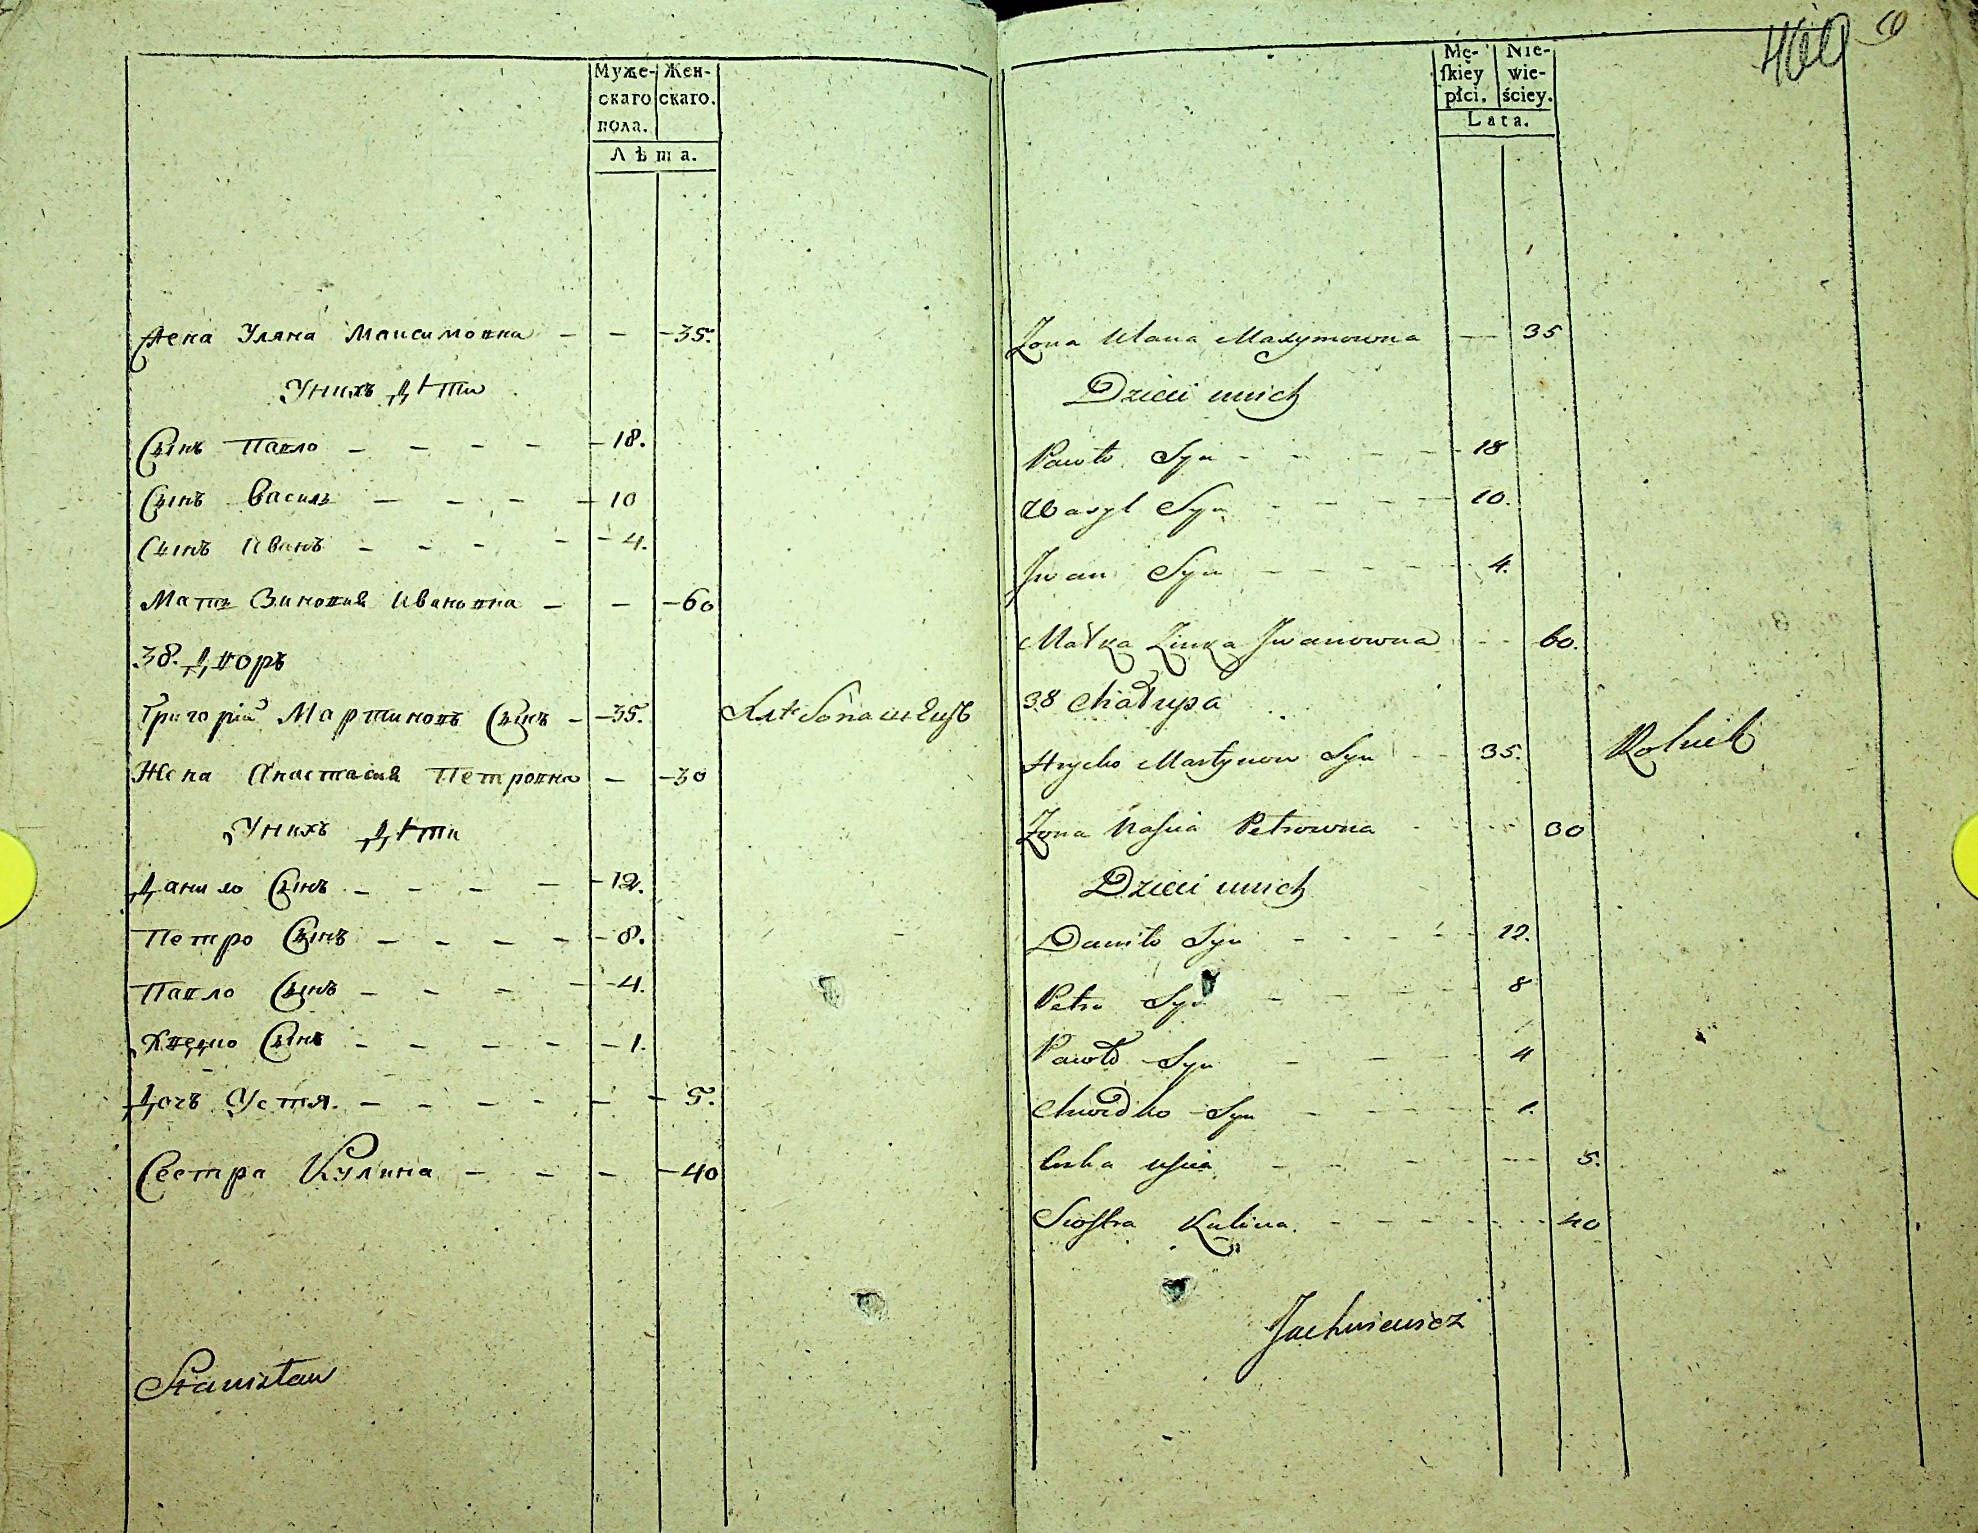 Муже- Жен-
скаго скаго.
пола.
Лѣта.
Жена Уляна Максимовна - - - 35.
Унихъ Дѣти
Сынъ Павло - - - - - 18.
Сынъ Василь - - - - 10
Сынъ Иванъ - - - - - 4.
Мать Зиновия Ивановна - - - 60
38. Дворъ
Григорій Мартиновъ Сынъ - - 35. Хлѣбопашецъ
Жена Анастасия Петровна - - 30
Унихъ Дѣти
Данило Сынъ - - - - - 12.
Петро Сынъ - - - - - 8.
Павло Сынъ - - - - - 4.
Хведко Сынъ - - - - - 1.
Дочъ Устя. - - - - - - 5.
Сестра Кулина - - - - 40
Stanisław
460
Mę- Nie-
skiey wie-
płci. ściey.
Lata.
Zona Ulana Maxymowna — 35
Dzieci unich
Pawło Syn - - - - 18
Wasyl Syn - - - - 10.
Jwan Syn - - - - - 4.
Matka Zinka Jwanowna - - 60.
38 Chałupa
Hryćko Martynow Syn - - 35. Rolnik
Zona Nascia Petrowna - - - 30
Dzieci unich
Daniło Syn - - - - - 12.
Petro Syn - - - - 8
Pawło Syn - - - 4
Chwedko Syn - - - - 1.
Corka Uscia - - - - - - 5.
Siostra Kulina. - - - - - - 40
Jachniewicz